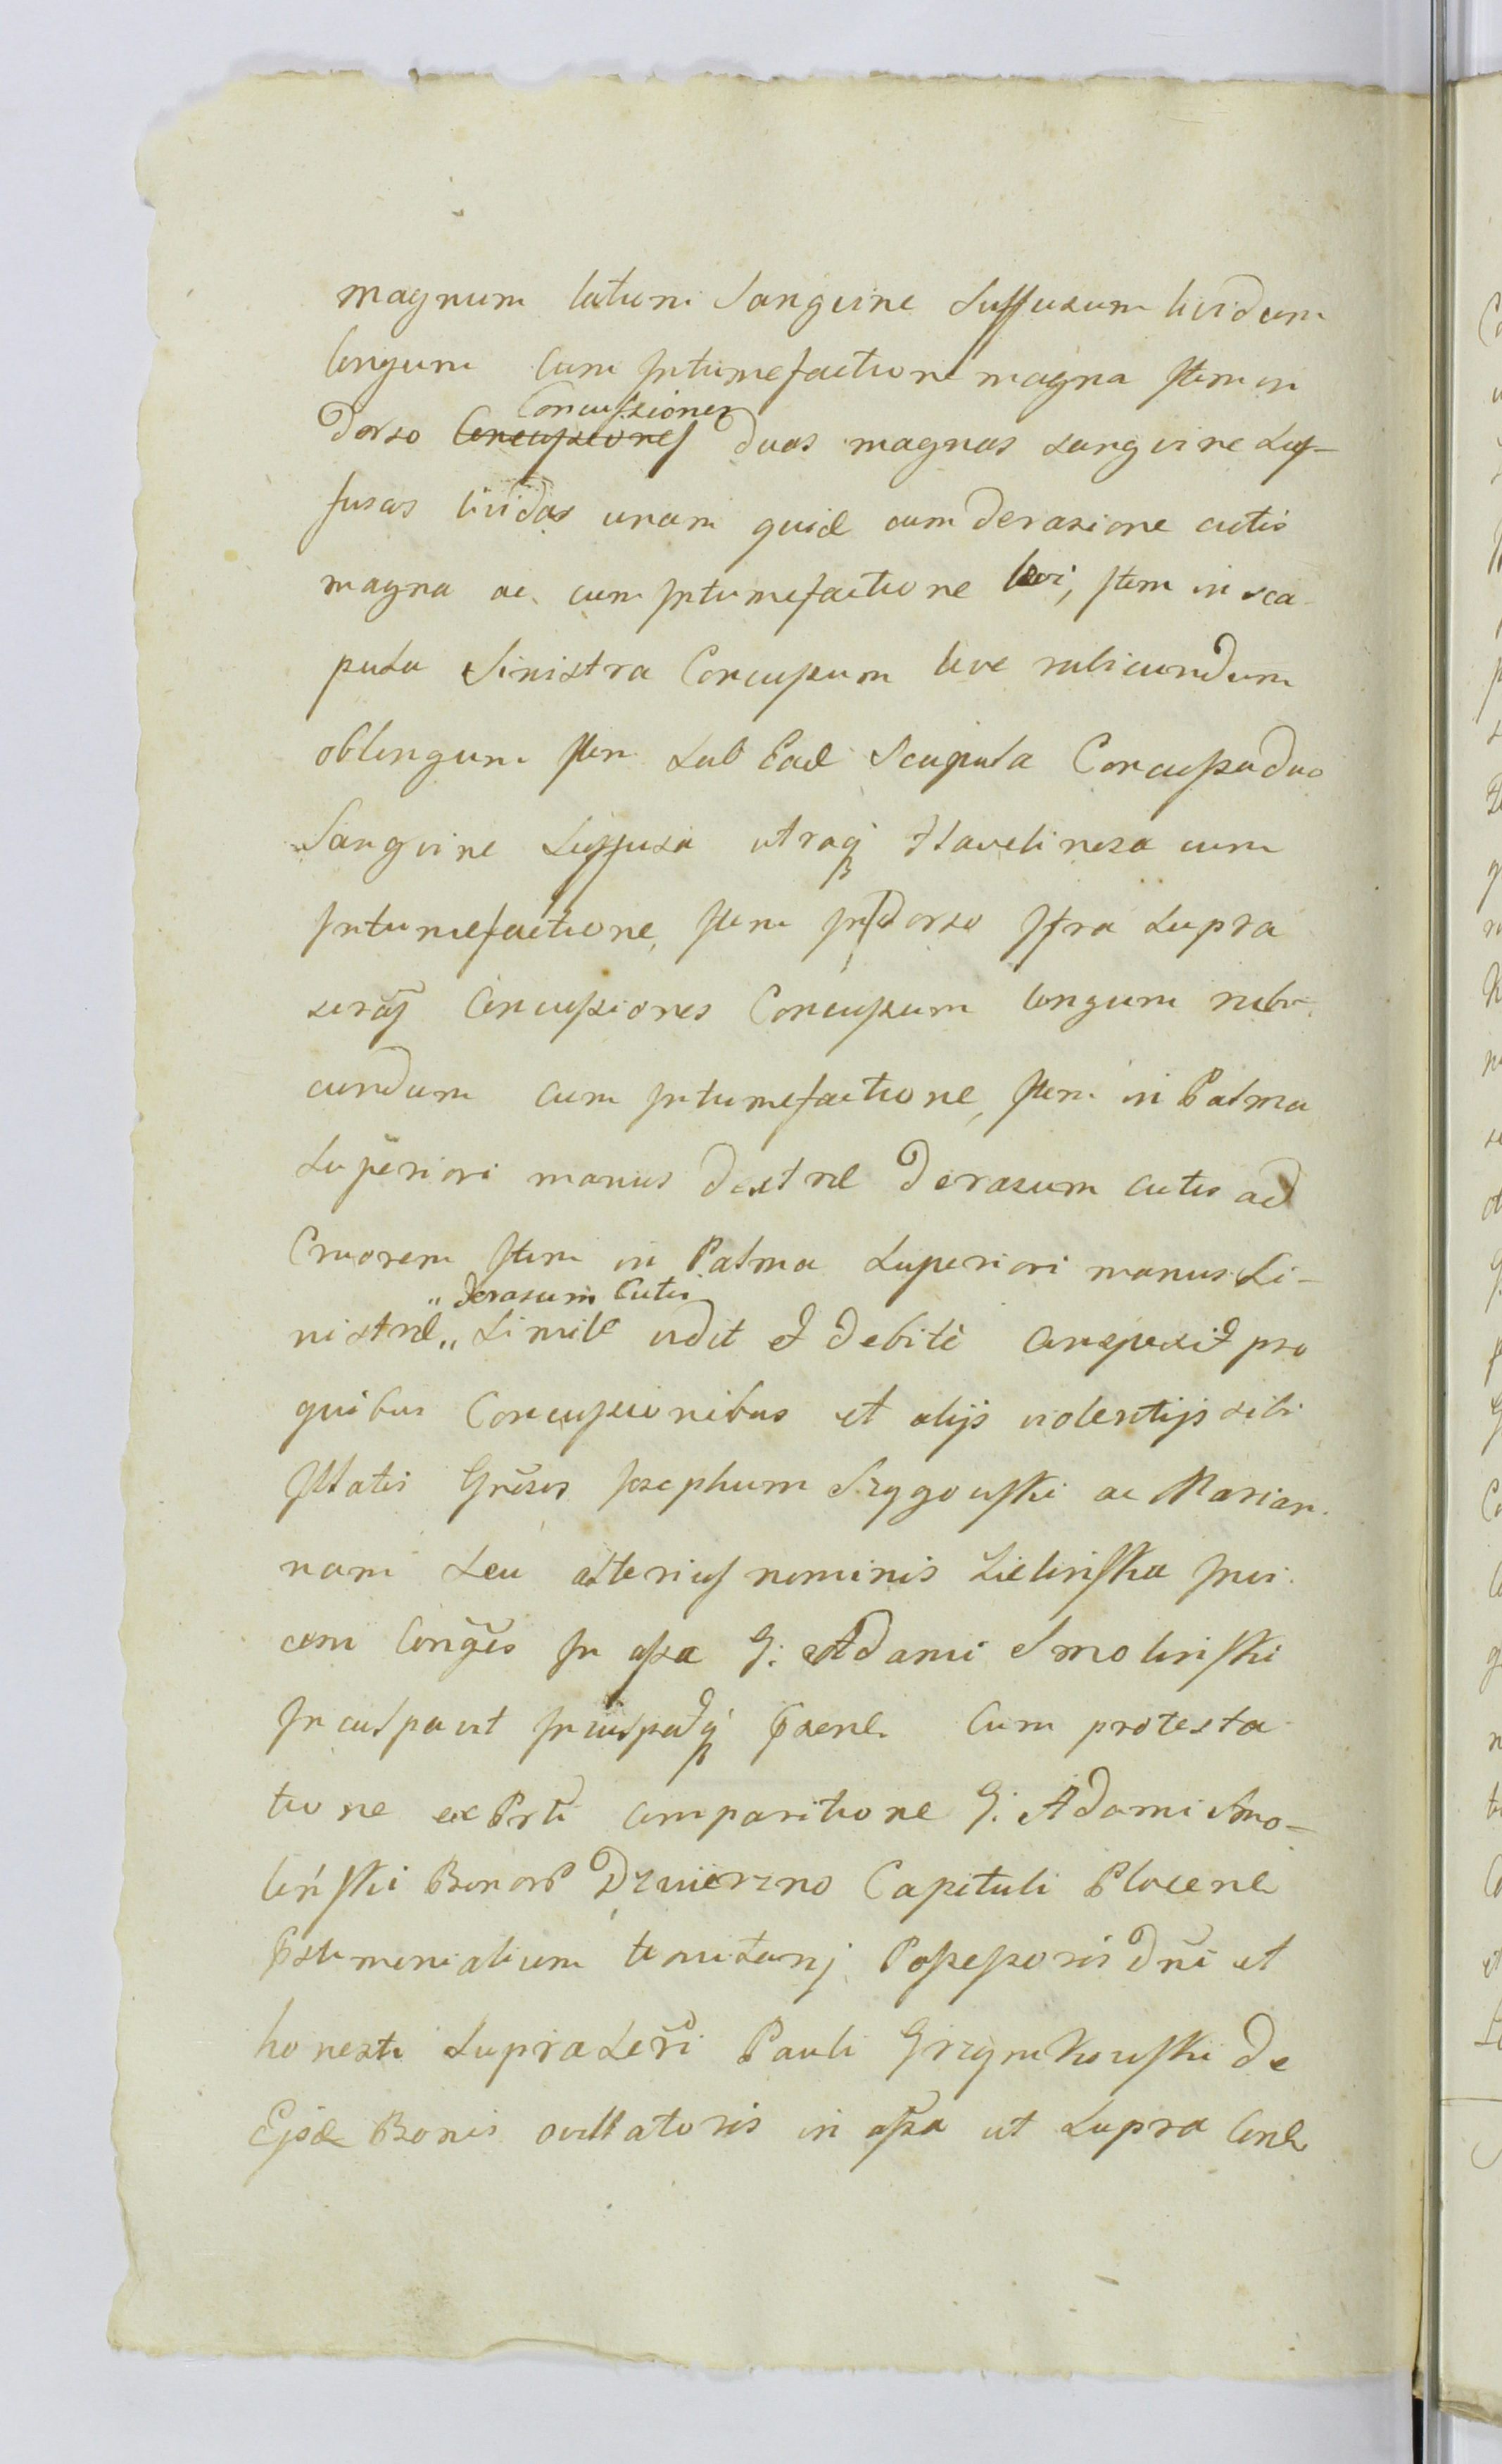 magnum latum Sanguine Suffusum lividum
longum cum Intumefactione magna Item in
Dorso Concussiones Concussiones duas magnas sanguine Suf-
fusas lividas unam quid cum derasione cutis
magna ac cum Intumefactione levi, Item in sca-
pula Sinistra Concussum leve rubicundum
oblongum Item Sub Ead Scapula Concussa duo
Sanguine Suffusa utraq flavelinosa cum
Intumefactione, Item In dorso Ifra Supra
Concussiones Concussum longum rubi-
cundum cum Intumefactione, Item in Palma
Superiori manus dextræ Derasum cutis ad
Cruorem Item in Palma Superiori manus Si-
nistræ „ Derasum Cutis „ Simile vidit et debitè conspexit pro
quibus Concussionibus et alijs violentijs sibi
Illatis Gnrsos Josephum Szygowski ac Marian-
nam Seu alterius nominis Zielinska Invi-
cem Conges In assa G. Adami Smolinski
Inculpavit Inculpatq psenl. Cum protesta-
tione ex Prti comparitione G. Adami Smo-
lińskii Bonor Dzwierzno Capituli Plocenl
pstimonialium tenutarij Possessoris Dni et
honesti Supra Scri Pauli Grzymkowski de
Ejsd Bonis ovillatoris in assa ut Supra Conl